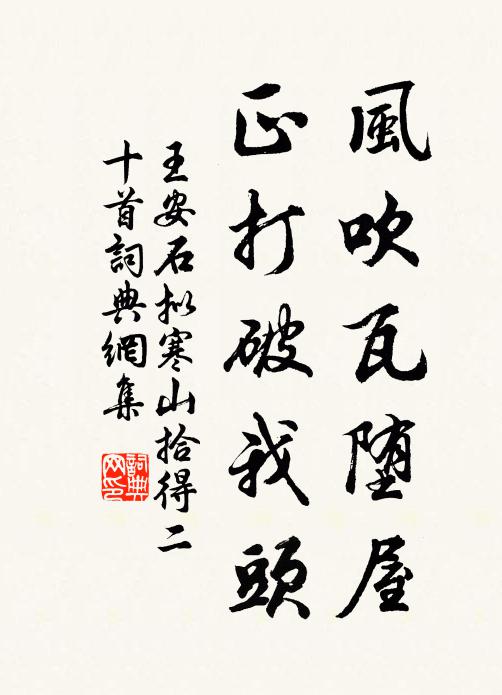 風吹瓦墮屋
正打破我頭
王安石拟寒山拾得二
十首詞典網集
詞典
网印